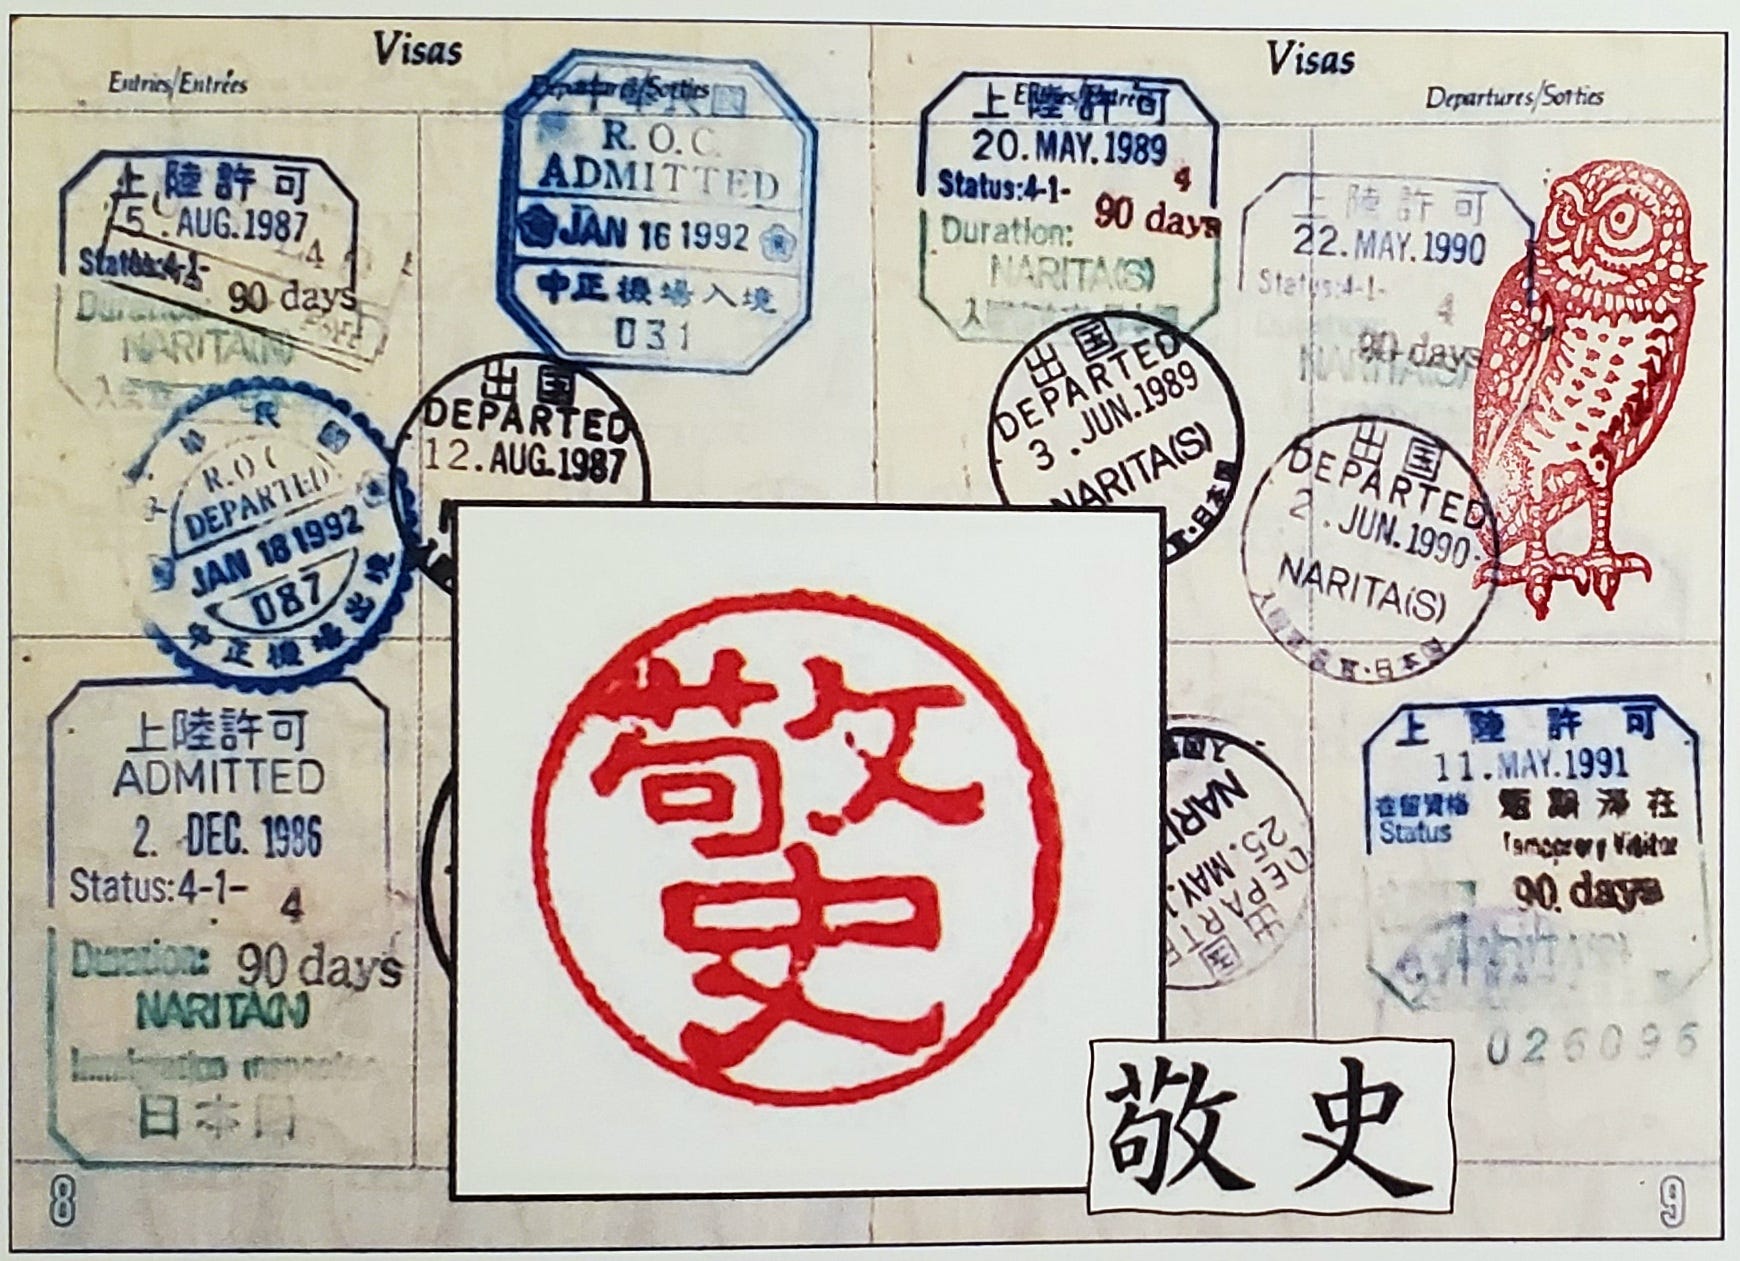 Visas
Entries/Entrées
Departures/Sorties
上陸許可
5. AUG. 1987
Status:4-1-
4
90 days
NARITA(N)
R.O.C.
ADMITTED
JAN 16 1992
中正機場入境
031
民國
R.O.C
DEPARTED
JAN 18 1992
087
中正機場出境
出国
DEPARTED
12. AUG. 1987
上陸許可
ADMITTED
2. DEC. 1986
Status:4-1-
4
Duration:
90 days
NARITA(N)
日本国
8
Visas
Entries/Entrées
Departures/Sorties
上陸許可
20. MAY. 1989
Status:4-1-
4
90 days
Duration:
NARITA(S)
上陸許可
22. MAY. 1990
Status:4-1-
4
90 days
NARITA(S)
出国
DEPARTED
3. JUN. 1989
NARITA(S)
日本国
出国
DEPARTED
2. JUN. 1990
NARITA(S)
日本国
出国
DEPARTE
25. MAY.
NARI
上陸許可
11. MAY. 1991
在留資格
短期滞在
Status
Temporary Visitor
90 days
026096
敬史
敬史
9